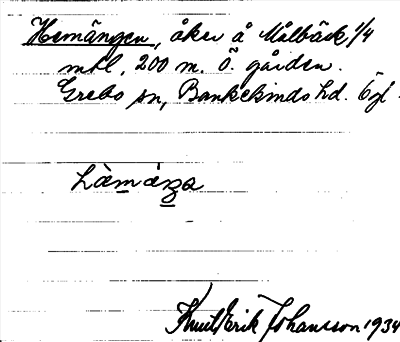 Hemängen, åker å Målbäck 1/4
mtl, 200 m. Ö. gården.
Grebo sn, Bankekinds hd. Ögl.
hèmáŋa
Knut Erik Johansson 1934